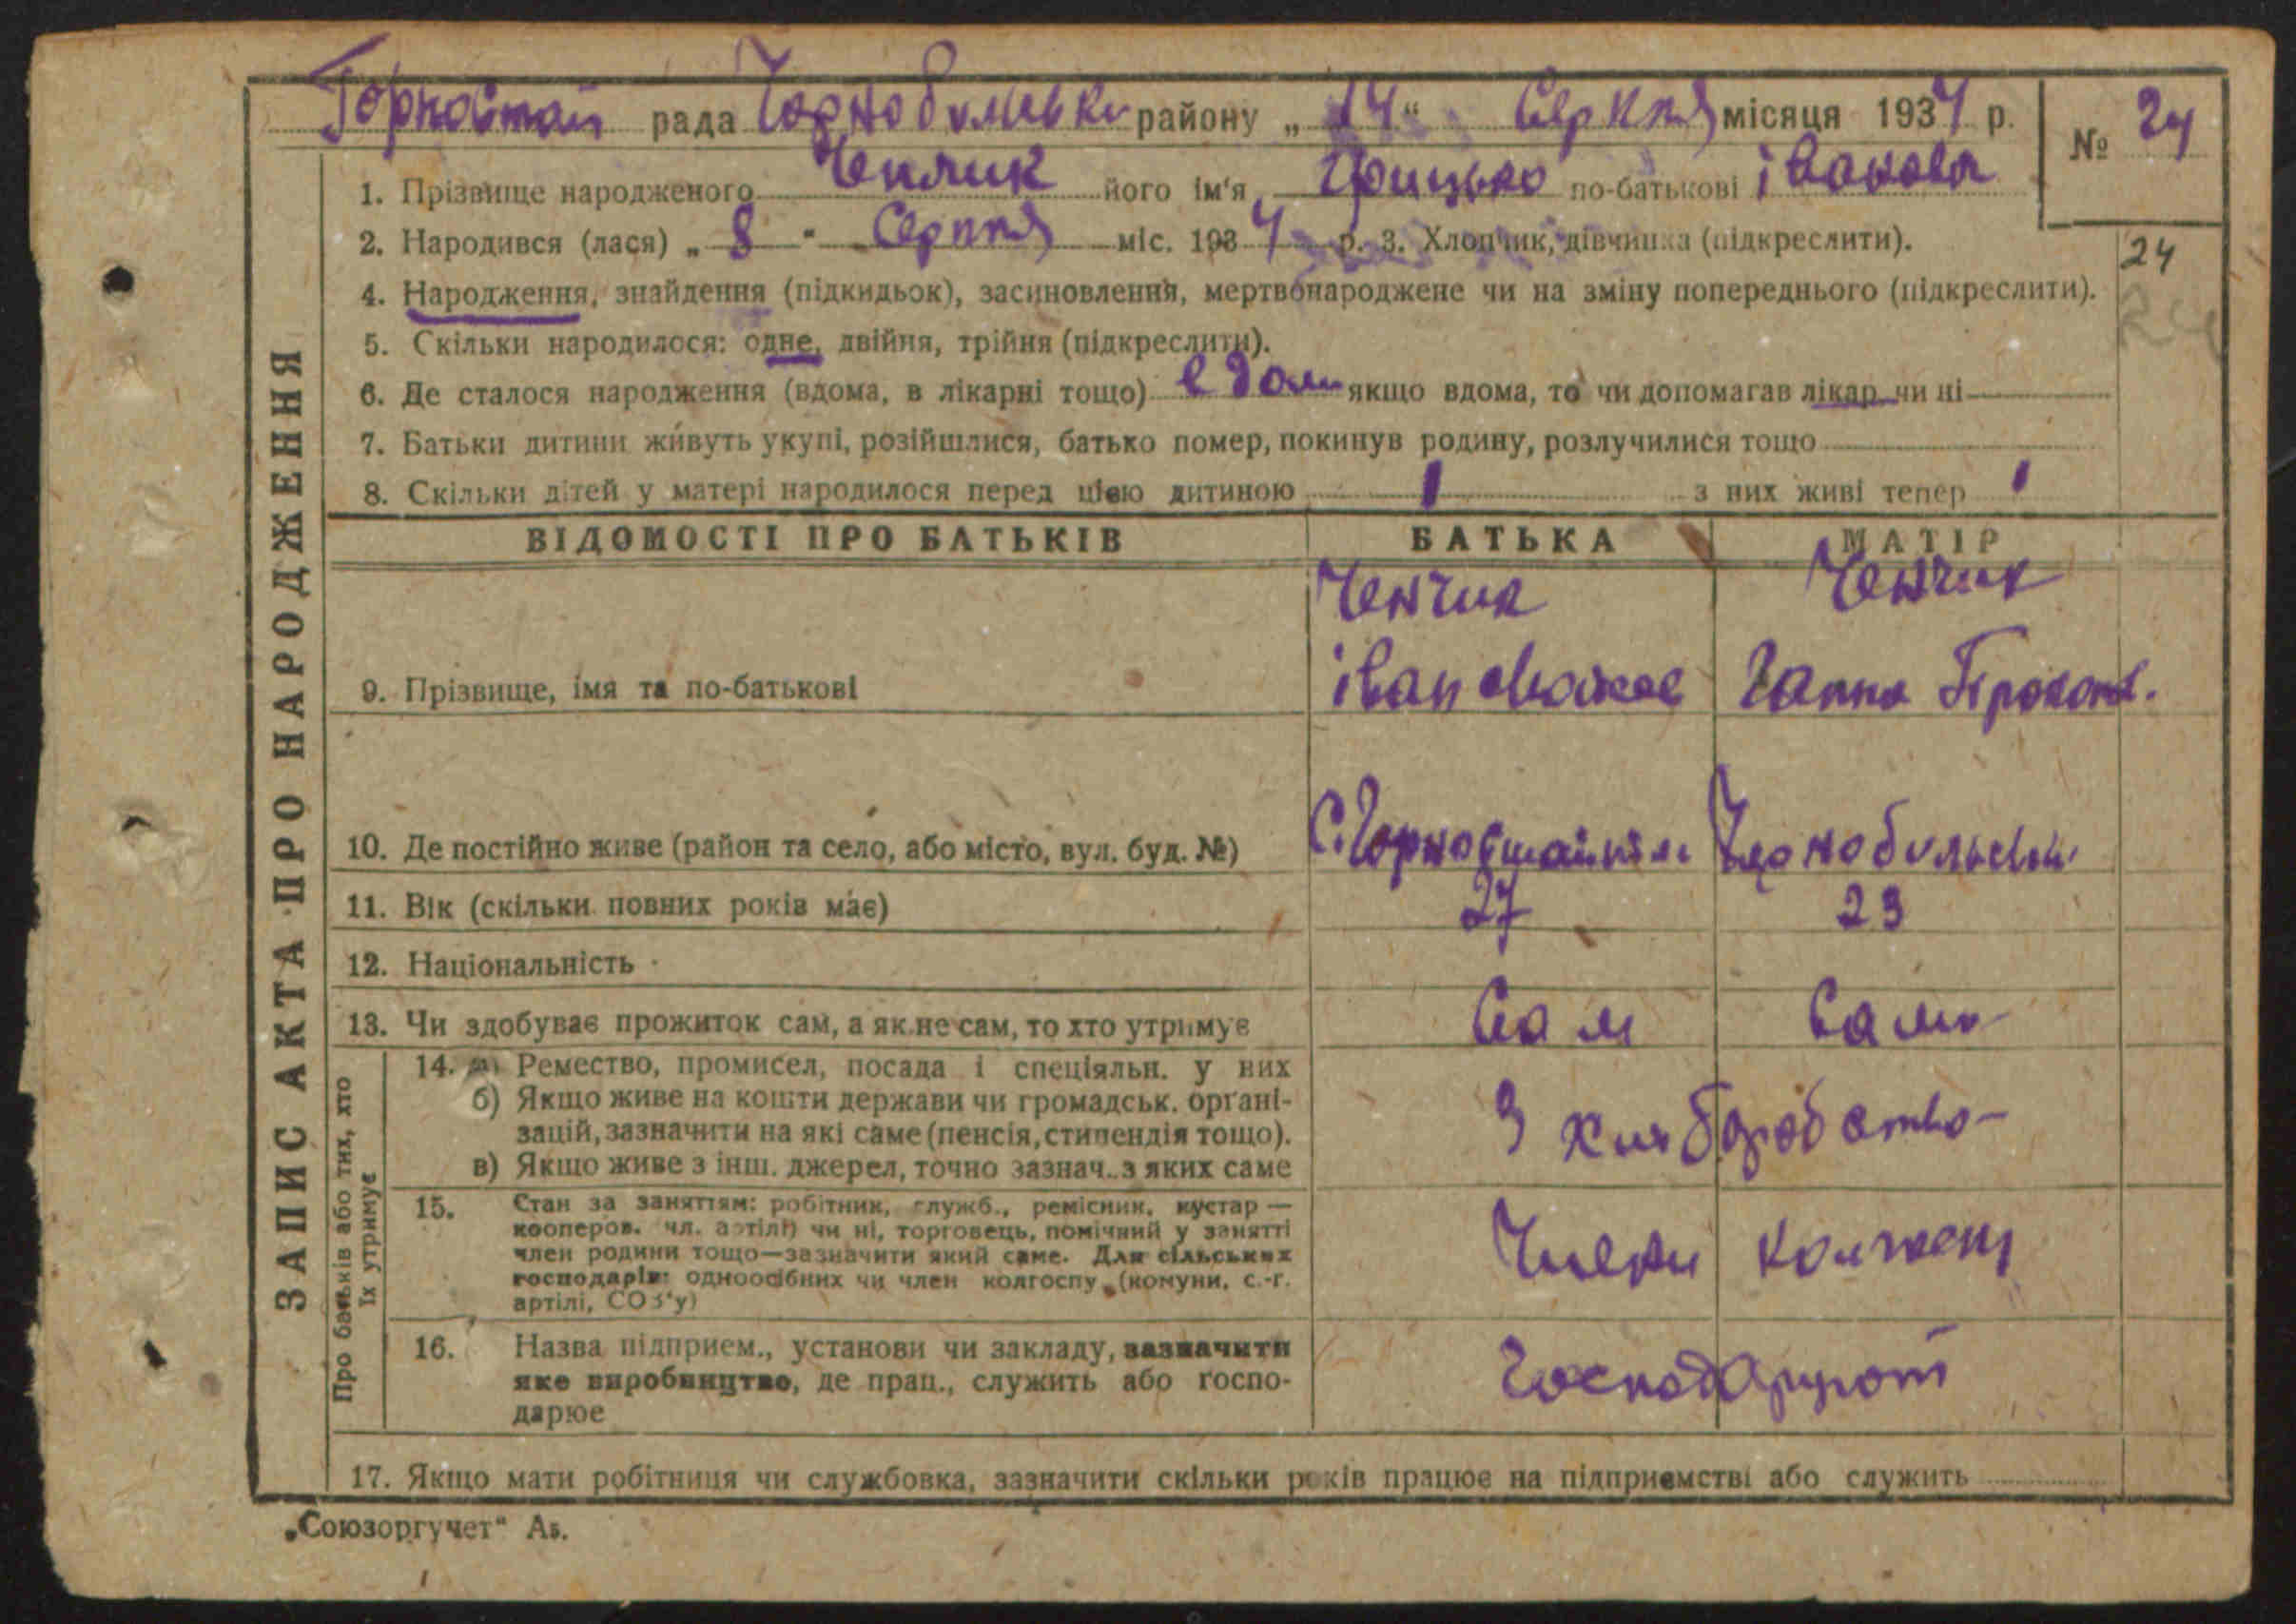 Горностай рада Чорнобильськ району „14“ Серпня місяця 1934 р.
№ 24
1. Прізвище народженого Ченчик його ім'я Грицько по-батькові Іванова
2. Народився (лася) „8“ Серпня міс. 1934 р. 3. Хлопчик, дівчинка (підкреслити).
24
24
4. Народження, знайдення (підкидьок), засиновлення, мертвонароджене чи на зміну попереднього (підкреслити).
5. Скільки народилося: одне, двійня, трійня (підкреслити).
6. Де сталося народження (вдома, в лікарні тощо) в доми якщо вдома, то чи допомагав лікар чи ні
7. Батьки дитини живуть укупі, розійшлися, батько помер, покинув родину, розлучилися тощо
8. Скільки дітей у матері народилося перед цією дитиною 1 з них живі тепер 1
ЗАПИС АКТА ПРО НАРОДЖЕННЯ
ВІДОМОСТІ ПРО БАТЬКІВ БАТЬКА МАТІР
Ченчик Ченчик
9. Прізвище, імя та по-батькові Іван Ганна Прокопів.
10. Де постійно живе (район та село, або місто, вул. буд. №) С. Чорнобильськ
11. Вік (скільки повних років має) 27 23
12. Національність
13. Чи здобуває прожиток сам, а як не сам, то хто утримує Сам Сама
Про батьків або тих, хто їх утримує
14. а) Ремество, промисел, посада і спеціяльн. у них
б) Якщо живе на кошти держави чи громадськ. органі-
зацій, зазначити на які саме (пенсія, стипендія тощо).
в) Якщо живе з інш. джерел, точно зазнач. з яких саме
З хліборобства
15. Стан за заняттям: робітник, служб., ремісник, кустар —
кооперов. (чл. артілі) чи ні, торговець, помічний у занятті
член родини тощо—зазначити який саме. Для сільських
господарів: одноосібних чи член колгоспу (комуни, с.-г.
артілі, СОЗ'у)
Члени
16. Назва підприєм., установи чи закладу, зазначити
яке виробництво, де прац., служить або госпо-
дарюе
Господарюют
17. Якщо мати робітниця чи службовка, зазначити скільки років працює на підприємстві або служить
„Союзоргучет“ Аз.